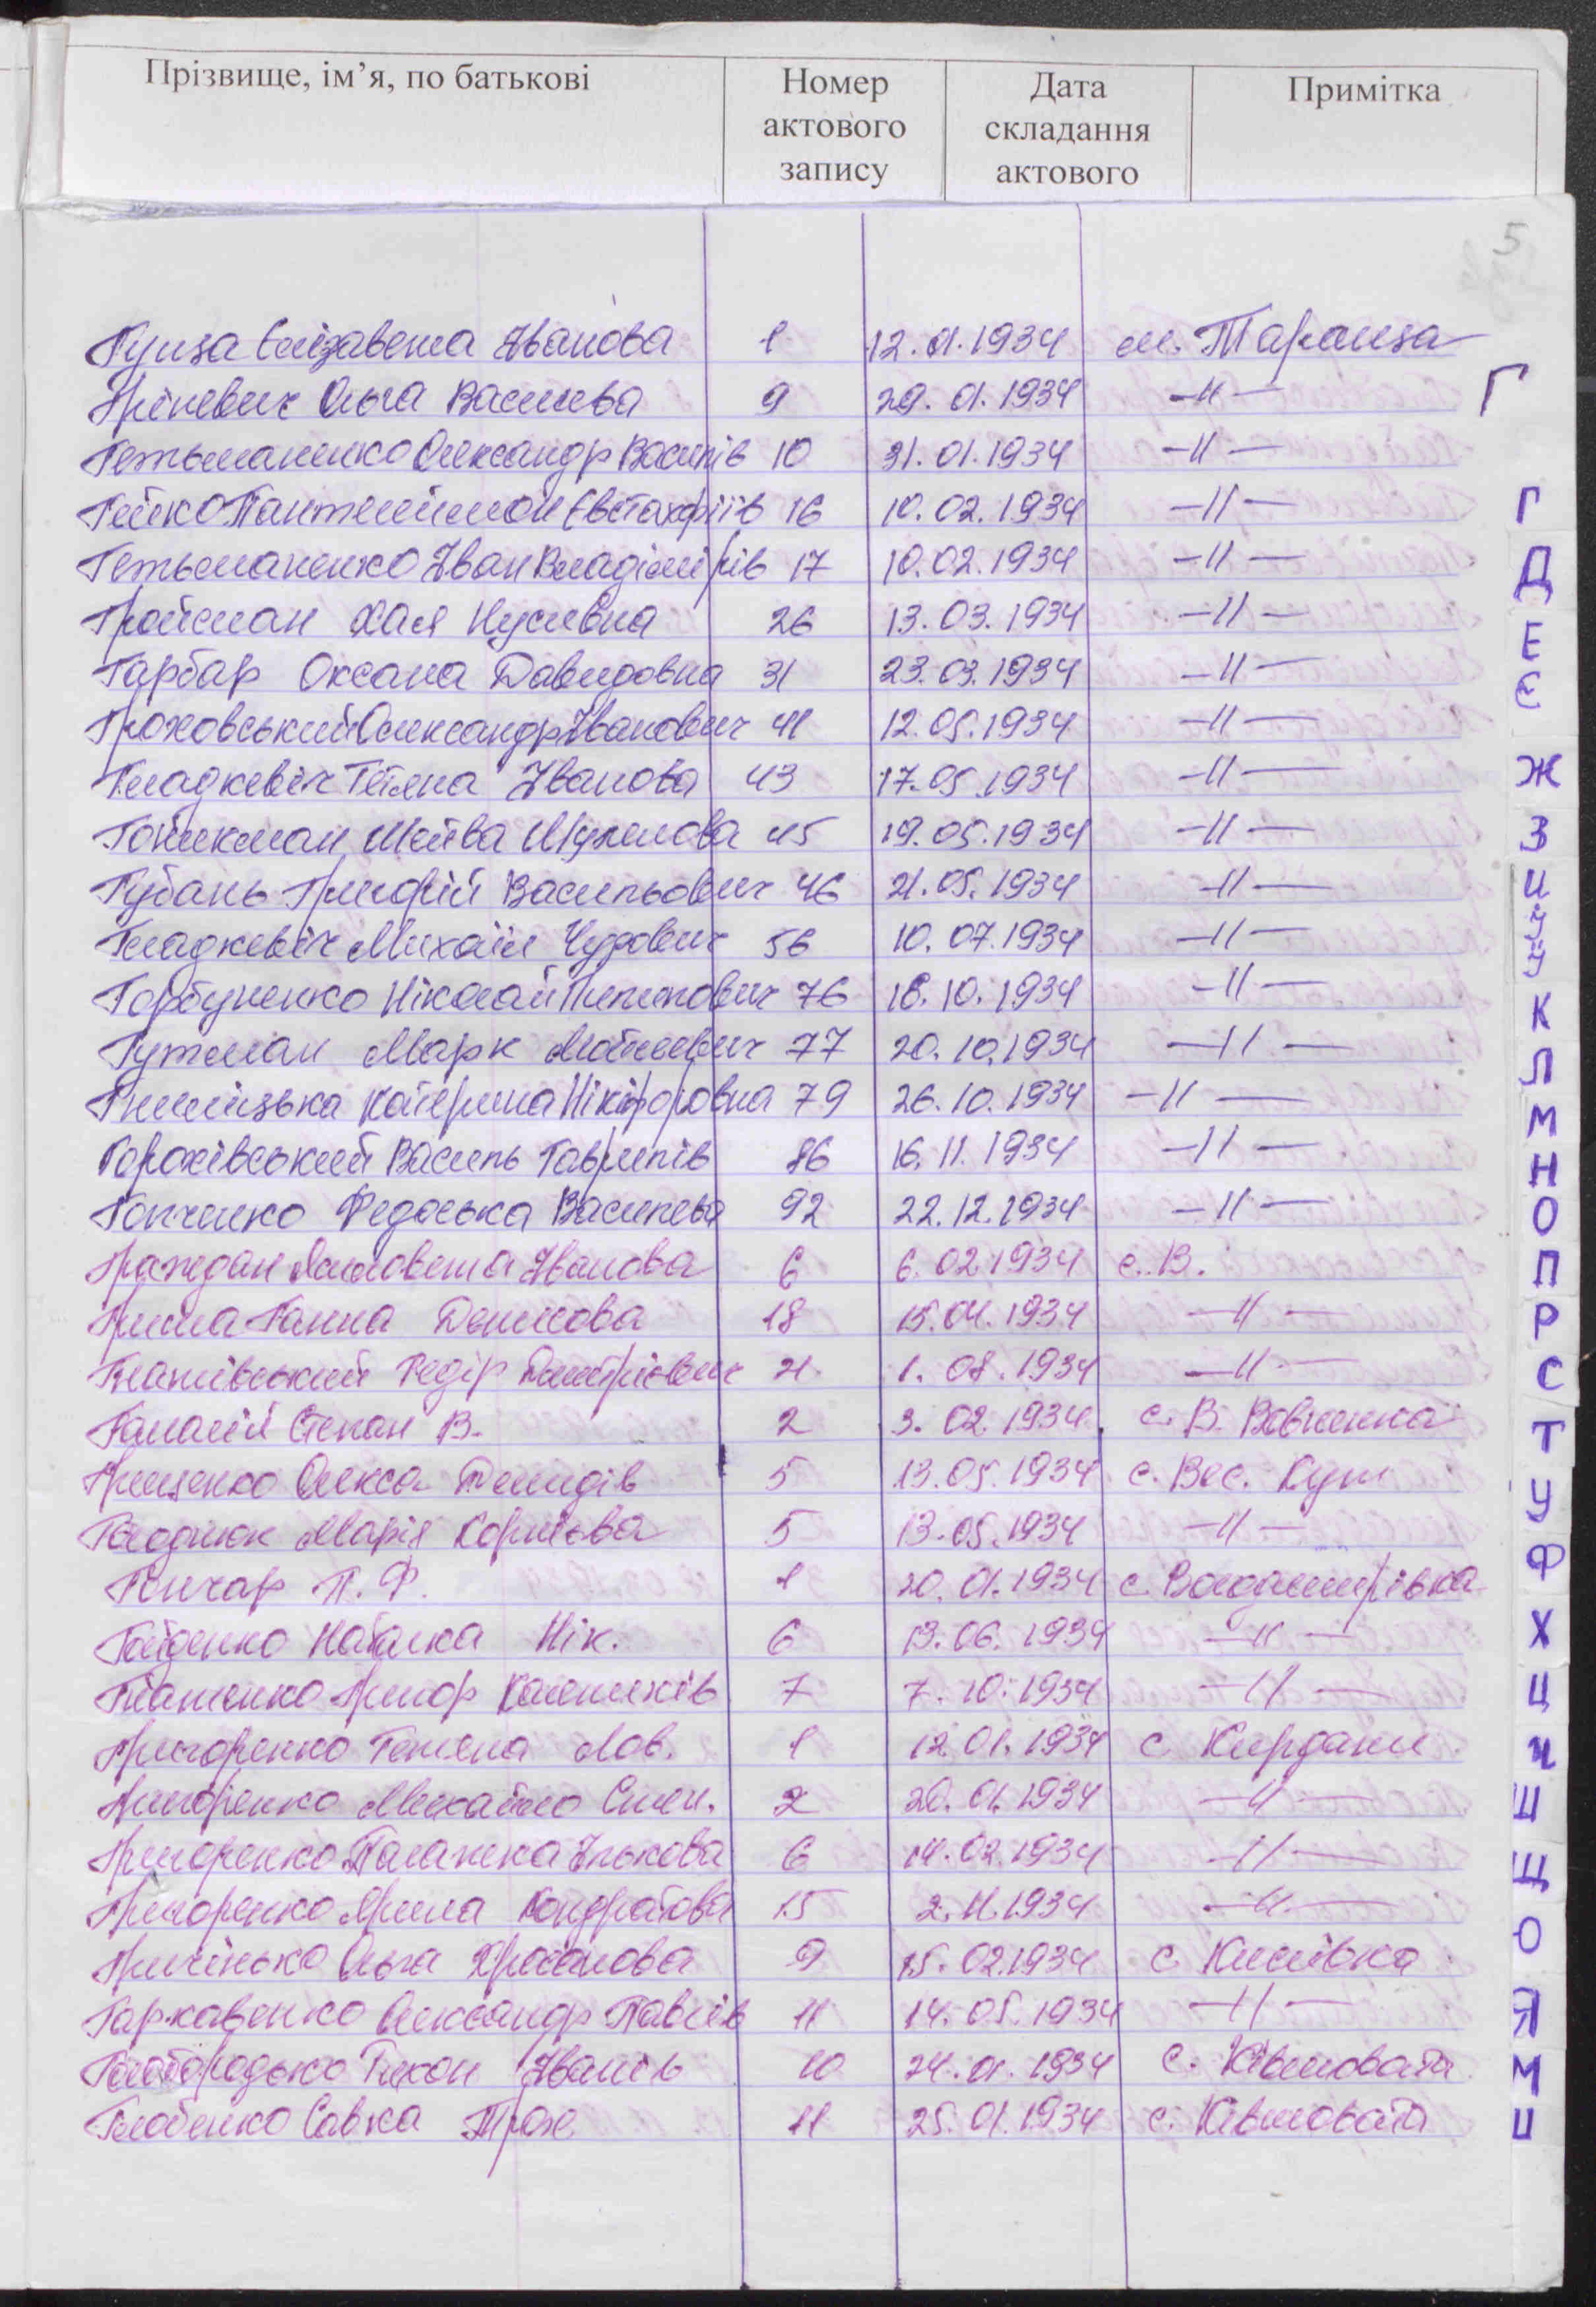 Прізвище, ім’я, по батькові Номер актового запису Дата складання актового Примітка
5
Гунза Єлізавета Іванова 1 12.01.1934 м. Тараща
Гріневич Ольга Васильева 9 29.01.1934 —ІІ—
Гетьманенко Олександр Васипів 10 31.01.1934 —ІІ—
Гейко Пантелеймон Євстахфіїв 16 10.02.1934 —ІІ—
Гетьманенко Іван Владімірів 17 10.02.1934 —ІІ—
Гройсман Хая Нусивна 26 13.03.1934 —ІІ—
Гарбар Оксана Давидовна 31 23.03.1934 —ІІ—
Гроховський Олександр Іванович 41 12.05.1934 —ІІ—
Гладкевіч Тетяна Іванова 43 17.05.1934 —ІІ—
Гойхман 45 19.05.1934 —ІІ—
Губань Григорій Васильович 46 21.05.1934 —ІІ—
Гладкевіч Михайл 56 10.07.1934 —ІІ—
Горбуненко Ніколай Пилипович 76 18.10.1934 —ІІ—
Гутман Марк Мойсеевич 77 20.10.1934 —ІІ—
Катерина Нікіфоровна 79 26.10.1934 —ІІ—
Горохівський Василь Гаврилів 86 16.11.1934 —ІІ—
Гопченко Федоська Василева 92 22.12.1934 —ІІ—
Граждан Іванова 6 6.02.1934 с. В.
Ганна Денисова 18 15.04.1934 —ІІ—
Федір Дмитрієвич 21 1.08.1934 —ІІ—
Гамалій Степан В. 2 3.02.1934 с. В. Вовнянка
Грищенко Олекса Демидів 5 13.05.1934 с. Вес. Кут
Марія Корнієва 5 13.05.1934 —ІІ—
Гончар П. Ф. 1 20.01.1934 с. Володимирівка
Гайденко Наталка Нік. 6 13.06.1934 —ІІ—
Гнатенко Григор Калеників 7 7.10.1934 —ІІ—
Григоренко Тетяна Лов. 1 12.01.1934 с. Кирдани
Григоренко Михайло Степ. 2 20.01.1934 —ІІ—
Григоренко Палажка Ількова 6 14.02.1934 —ІІ—
Григоренко Ярина Кондратова 15 2.11.1934 —ІІ—
Ольга 9 15.02.1934 с. Кислівка
Гаркавенко Олександр Павлів 11 14.05.1934 —ІІ—
Голобородько Тихон Іванів 10 24.01.1934 с. Ківшовата
Глобенко Савка Трох. 11 25.01.1934 с. Ківшовата
Г
Г
Д
Е
Є
Ж
З
И
І
Ї
К
Л
М
Н
О
П
Р
С
Т
У
Ф
Х
Ц
Ч
Ш
Щ
Ю
Я
М
Ц